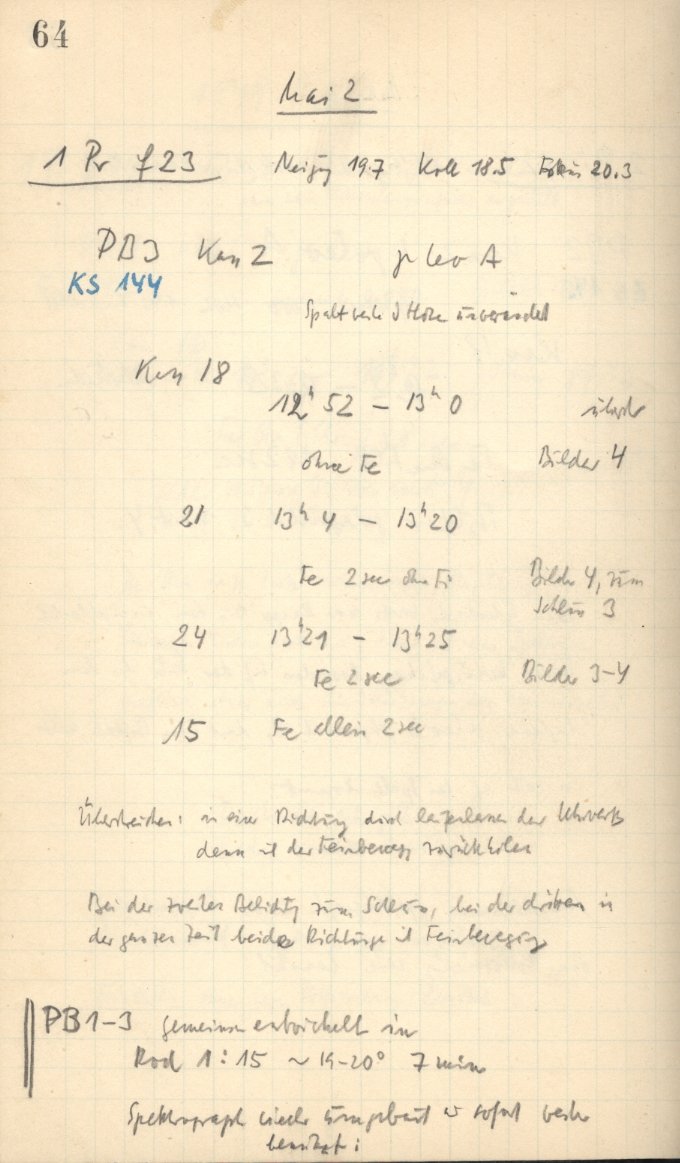 64
Mai 2
1 Pr f 23 Neigg 19.7 Koll 18.5 Fokus 20.3
PB3 Kass 2 γ Leo A
KS 144
Spaltweite u Höhe unverändert
Kass 18
12ʰ 52 – 13ʰ 0
ohne Fe Bilder 4
21 13ʰ 4 – 13ʰ 20
Fe 2 sec Bilder 4, zum
Schluss 3
24 13ʰ 21 – 13ʰ 25
Fe 2 sec Bilder 3–4
15 Fe allein 2 sec
Überstreichen: in einer Richtung durch des Uhrwerks
dann mit der Feinbewegg zurückholen
Bei der zweiten Belichtg zum Schluss, bei der dritten in
der ganzen Zeit beide Richtungen mit Feinbewegung
PB1–3 gemeinsam entwickelt in
Rod 1:15 ~ 19–20° 7 min
Spektrograph wieder umgebaut u sofort weiter
benutzt: